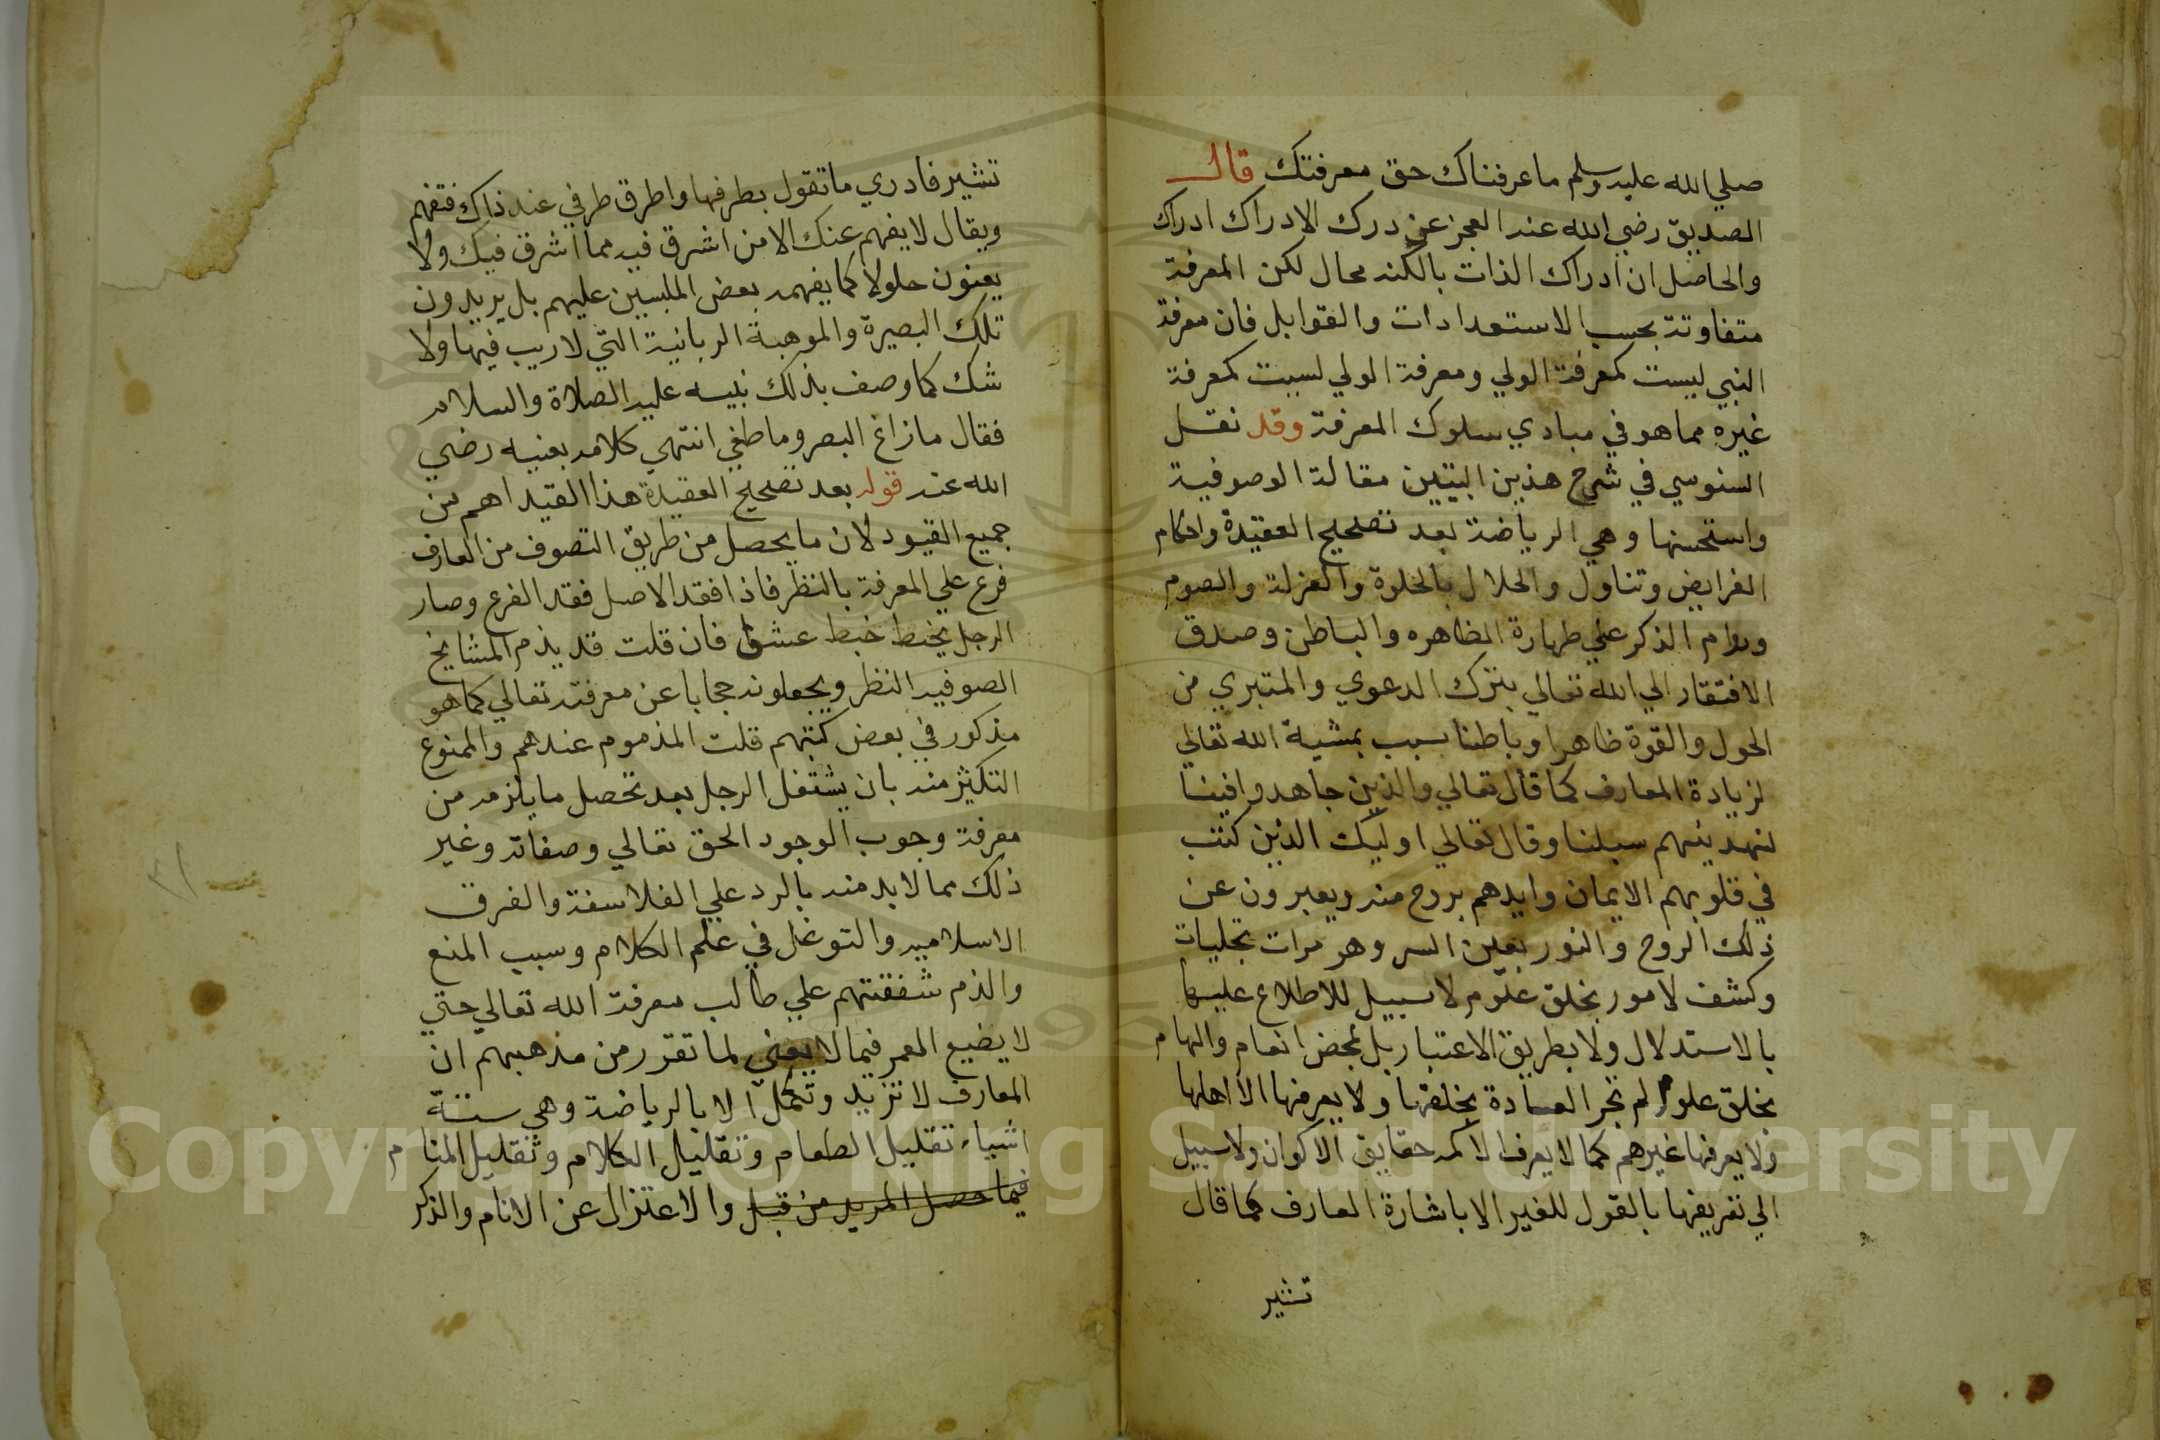 صلي الله عليه وسلم ما عرفناك حق معرفتك قال
الصديق رضي الله عنه العجز عن درك الادراك ادراك
والحاصل ان ادراك الذات بالكنه محال لكن المعرفة
متفاوتة بحسب الاستعدادات والقوابل فان معرفة
النبي ليست كمعرفة الولي ومعرفة الولي لسيت كمعرفة
غيره مما هو في مبادي سلوك المعرفة وقد نقل
السنوسي في شرح هذين البيتين مقالة الوصوفية
واستحسنها وهي الرياضة بعد تصحيح العقيدة واحكام
الفرايض وتناول والحلال بالخلوة والعزلة والصوم
ودوام الذكر علي طهارة الظاهره والباطن وصدق
الافتقار الي الله تعالي بترك الدعوي والمتبري من
الحول والقوة ظاهرا وباطنا بسبب بمشية الله تعالي
لزيادة المعارف كما قال تعالي والذين جاهدوا فينا
لنهدينهم سبلنا وقال تعالي اوليك الذين كتب
في قلوبهم الايمان وايدهم بروح منه ويعبرون عن
ذلك الروح والنور بعين السر وهو مرات تجليات
وكشف لامور بخلق علوم لا سبيل للاطلاع عليها
بالاستدلال ولا بطريق الاعتبار بل بمحض انعام والهام
بخلق علوم لم تجر العادة بخلقها ولا يعرفها الا اهلها
ولا يعرفها غيرهم كما لا يعرف الاكمه حقايق الاكوان ولا سبيل
الي تعريفها بالقول للغير الا باشارة العارف كما قال
تشير
تشير فادري ما تقول بطرفها واطرق طرفي عند ذاك فتفهم
ويقال لا يفهم عنك الا من اشرق فيه مما اشرق فيك ولا
يعنون حلولا كما يفهمه بعض الملبسين عليهم بل يريدون
تلك البصيرة والموهبة الربانية التي لا ريب فيها ولا
شك كما وصف بذلك نبيه عليه الصلاة والسلام
فقال ما زاغ البصر وما طغي انتهي كلامه بعنيه رضي
الله عنه قوله بعد تصحيح العقيدة هذا القيد اهم من
جميع القيود لان ما يحصل من طريق التصوف من المعارف
فرع علي المعرفة بالنظر فاذا فقد الاصل فقد الفرع وصار
الرجل يخبط خبط عشوا فان قلت قد يذم المشايخ
الصوفيه النظر ويجعلونه حجابا عن معرفته تعالي كما هو
مذكور في بعض كتبهم قلت المذموم عندهم والممنوع
التكثير منه بان يشتغل الرجل بعد تحصل ما يلزمه من
معرفة وجوب الوجود الحق تعالي وصفاته وغير
ذلك مما لا بد منه بالرد علي الفلاسفة والفرق
الاسلاميه والتوغل في علم الكلام وسبب المنع
والذم شفقتهم علي طالب معرفة الله تعالي حتي
لا يضيع العمر فيما لا يعني لما تقرر من مذهبهم ان
المعارف لا تزيد وتكمل الا بالرياضة وهي ستة
اشياء تقليل الطعام وتقليل الكلام وتقليل المنام
فيما حصل المريد من قبل والاعتزال عن الانام والذكر
Copyright © King Saud University